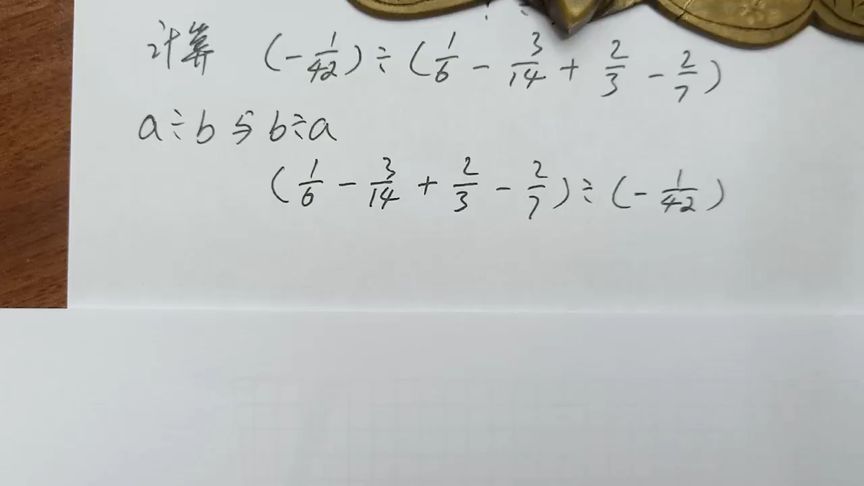 计算 (-1/42)÷(1/6-3/14+2/3-2/7)
a÷b与b÷a
(1/6-3/14+2/3-2/7)÷(-1/42)